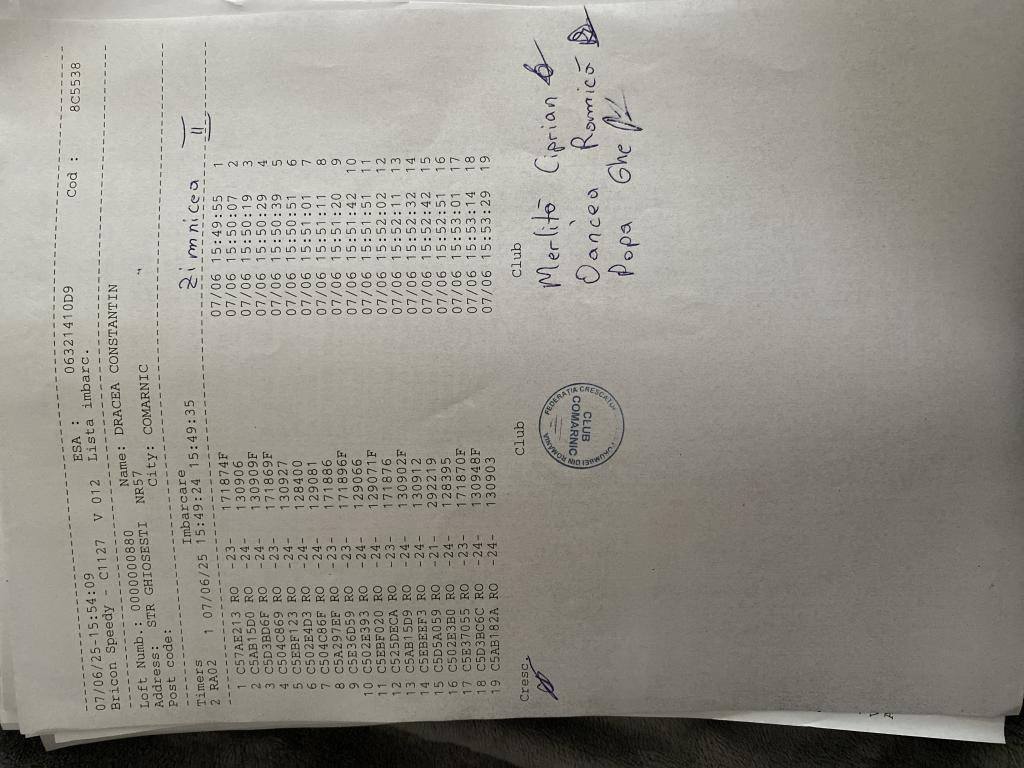 07/06/25-15:54:09 ESA : 06321410D9 Cod : 8C5538
Bricon Speedy - C1127 V 012 Lista imbarc.
Loft Numb.: 0000000880 Name: DRACEA CONSTANTIN
Address: STR GHIOSESTI NR57
Post code: City: COMARNIC
Timers Imbarcare Zimnicea II
1 07/06/25 15:49:24 15:49:35
2 RA02
1 C57AE213 RO -23- 171874F 07/06 15:49:55 1
2 C5AB15D0 RO -24- 130906 07/06 15:50:07 2
3 C5D3BD6F RO -24- 130909F 07/06 15:50:19 3
4 C504C869 RO -23- 171869F 07/06 15:50:29 4
5 C5EBF123 RO -24- 130927 07/06 15:50:39 5
6 C502E4D3 RO -24- 128400 07/06 15:50:51 6
7 C504C86F RO -24- 129081 07/06 15:51:01 7
8 C5A297EF RO -23- 171886 07/06 15:51:11 8
9 C5E36D59 RO -23- 171896F 07/06 15:51:20 9
10 C502E393 RO -24- 129066 07/06 15:51:42 10
11 C5EBF020 RO -24- 129071F 07/06 15:51:51 11
12 C525DECA RO -23- 171876 07/06 15:52:02 12
13 C5AB15D9 RO -24- 130902F 07/06 15:52:11 13
14 C5EBEEF3 RO -24- 130912 07/06 15:52:32 14
15 C5D5A059 RO -21- 292219 07/06 15:52:42 15
16 C502E3B0 RO -24- 128395 07/06 15:52:51 16
17 C5E37055 RO -23- 171870F 07/06 15:53:01 17
18 C5D3BC6C RO -24- 130948F 07/06 15:53:14 18
19 C5AB182A RO -24- 130903 07/06 15:53:29 19
Cresc. Club Club
FEDERATIA CRESCATOR
CLUB
COMARNIC
DIN ROMANIA
Merlită Ciprian
Oancea Romică
Popa Ghe